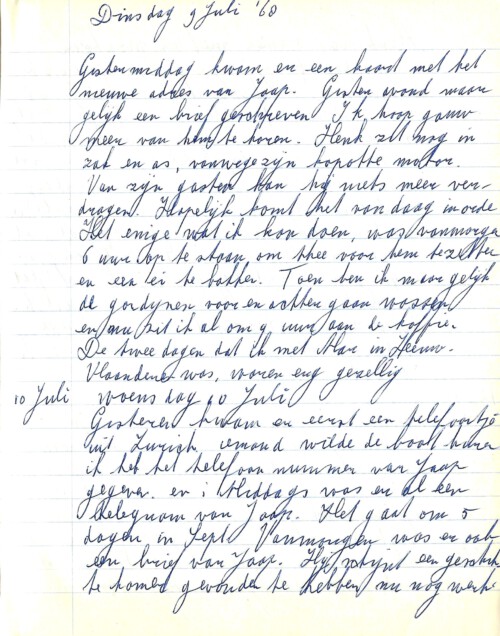 Dinsdag 9 Juli '68
Gistermiddag kwam er een kaart met het
nieuwe adres van Jaap. Gister avond maar
gelijk een brief geschreven Ik hoop gauw
meer van hem te horen. Henk zit nog in
zak en as, vanwege zijn kapotte motor.
Van zijn gasten kan hij niets meer ver-
dragen. Hopelijk komt het vandaag in orde
Het enige wat ik kon doen, was vanmorgen
6 uur op te staan, om thee voor hem te zetten
en een ei te bakken. Toen ben ik maar gelijk
de gordynen voor en achter gaan wassen
en nu zit ik al om 9 uur aan de koffie.
De twee dagen dat ik met Mar in Zeeuw-
Vlaanderen was, waren erg gezellig
10 Juli woensdag 10 Juli
Gisteren kwam er eerst een telefoontje
uit Zurich, iemand wilde de boot huren
ik heb het telefoon nummer van Jaap
gegeven. en 's Middags was er al een
telegram van Jaap. Het gaat om 5
dagen in Sept. Vanmorgen was er ook
een brief van Jaap. Hij schijnt een geschikte
te kamer gevonden te hebben nu nog werk.